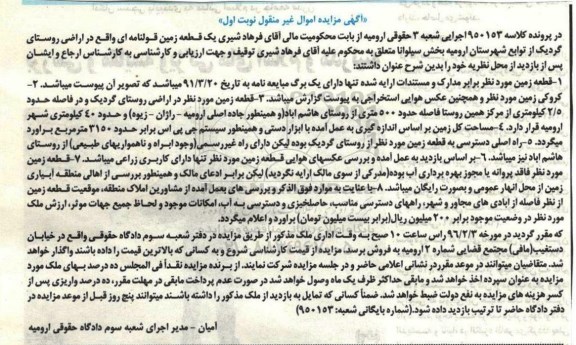 «آگهی مزایده اموال غیر منقول نوبت اول»
در پرونده کلاسه ۹۵۰۱۵۳ اجرایی شعبه ۳ حقوقی ارومیه از بابت محکومیت مالی آقای فرهاد شیری یک قطعه زمین قولنامه ای واقع در اراضی روستای
گردیک از توابع شهرستان ارومیه بخش سیلوانا متعلق به محکوم علیه آقای فرهاد شیری توقیف و جهت ارزیابی و کارشناسی به کارشناس ارجاع و ایشان
پس از بازدید از محل نظریه خود را بدین شرح عنوان داشتند:
۱-قطعه زمین مورد نظر برابر مدارک و مستندات ارایه شده تنها دارای یک برگ مبایعه نامه به تاریخ ۹۱/۳/۲۰ میباشد که تصویر آن پیوست میباشد. ۲-
کروکی زمین مورد نظر و همچنین عکس هوایی استخراجی به پیوست گزارش میباشد. ۳-قطعه زمین مورد نظر در اراضی روستای گردیک و در فاصله حدود
۲/۵ کیلومتری از مرکز همین روستا فاصله حدود ۵۰۰ متری از روستای هاشم اباد(و همینطور جاده اصلی ارومیه - راژان - زیوه) و حدود ۴۰ کیلومتری شهر
ارومیه قرار دارد. ۴-مساحت کل زمین بر اساس اندازه گیری به عمل آمده با ابزار دستی و همینطور سیستم جی پی اس برابر حدود ۳۱۵۰ مترمربع براورد
میگردد. ۵-راه اصلی دسترسی به قطعه زمین مورد نظر از روستای گردیک بوده لیکن دارای راه غیررسمی(وجود ابراه و ناهمواریهای طبیعی) از روستای
هاشم اباد نیز میباشد. ۶-بر اساس بازدید به عمل آمده و بررسی عکسهای هوایی قطعه زمین مورد نظر تنها دارای کاربری زراعی میباشد. ۷-قطعه زمین
مورد نظر فاقد پروانه یا مجوز بهره برداری آب بوده(مدرکی از سوی مالک ارایه نگردید) لیکن برابر ادعای مالک و همینطور بررسی از اهالی منطقه آبیاری
زمین از محل انهار عمومی و بصورت رایگان میباشد. ۸-با عنایت به موارد فوق الذکر و بررسی های بعمل آمده از مشاورین املاک منطقه، موقعیت قطعه زمین
از نظر فاصله از ابادی های مجاور و شهر، راههای دسترسی مناسب، حاصلخیزی و دسترسی به آب، امکانات موجود و لحاظ جمیع جهات موثر، ارزش ملک
مورد نظر در وضعیت موجود برابر ۲۰۰ میلیون ریال(برابر بیست میلیون تومان) براورد و اعلام میگردد.
که مقرر گردید در مورخه ۹۶/۲/۳ راس ساعت ۱۰ صبح به وقت اداری ملک مذکور از طریق مزایده در دفتر شعبه سوم دادگاه حقوقی واقع در خیابان
دستغیب(مافی) مجتمع قضایی شماره ۲ ارومیه به فروش برسد. مزایده از قیمت کارشناسی شروع و به کسانی که بالاترین قیمت را داده باشند واگذار خواهد
شد. متقاضیان میتوانند در موعد مقرر در نشانی اعلامی حاضر و در جلسه مزایده شرکت نمایند. از برنده مزایده نقداً فی المجلس ده درصد بهای ملک مورد
مزایده به عنوان سپرده اخذ خواهد شد و مابقی حداکثر ظرف یک ماه وصول خواهد شد در صورت عدم پرداخت مابقی در مهلت مقرر، ده درصد واریزی پس از
کسر هزینه های مزایده به نفع دولت ضبط خواهد شد. ضمناً کسانی که تمایل به بازدید از ملک مذکور را داشته باشند میتوانند پنج روز قبل از موعد مزایده در
دفتر دادگاه حاضر تا ترتیب بازدید داده شود.(شماره بایگانی شعبه: ۹۵۰۱۵۳)
آمیان - مدیر اجرای شعبه سوم دادگاه حقوقی ارومیه